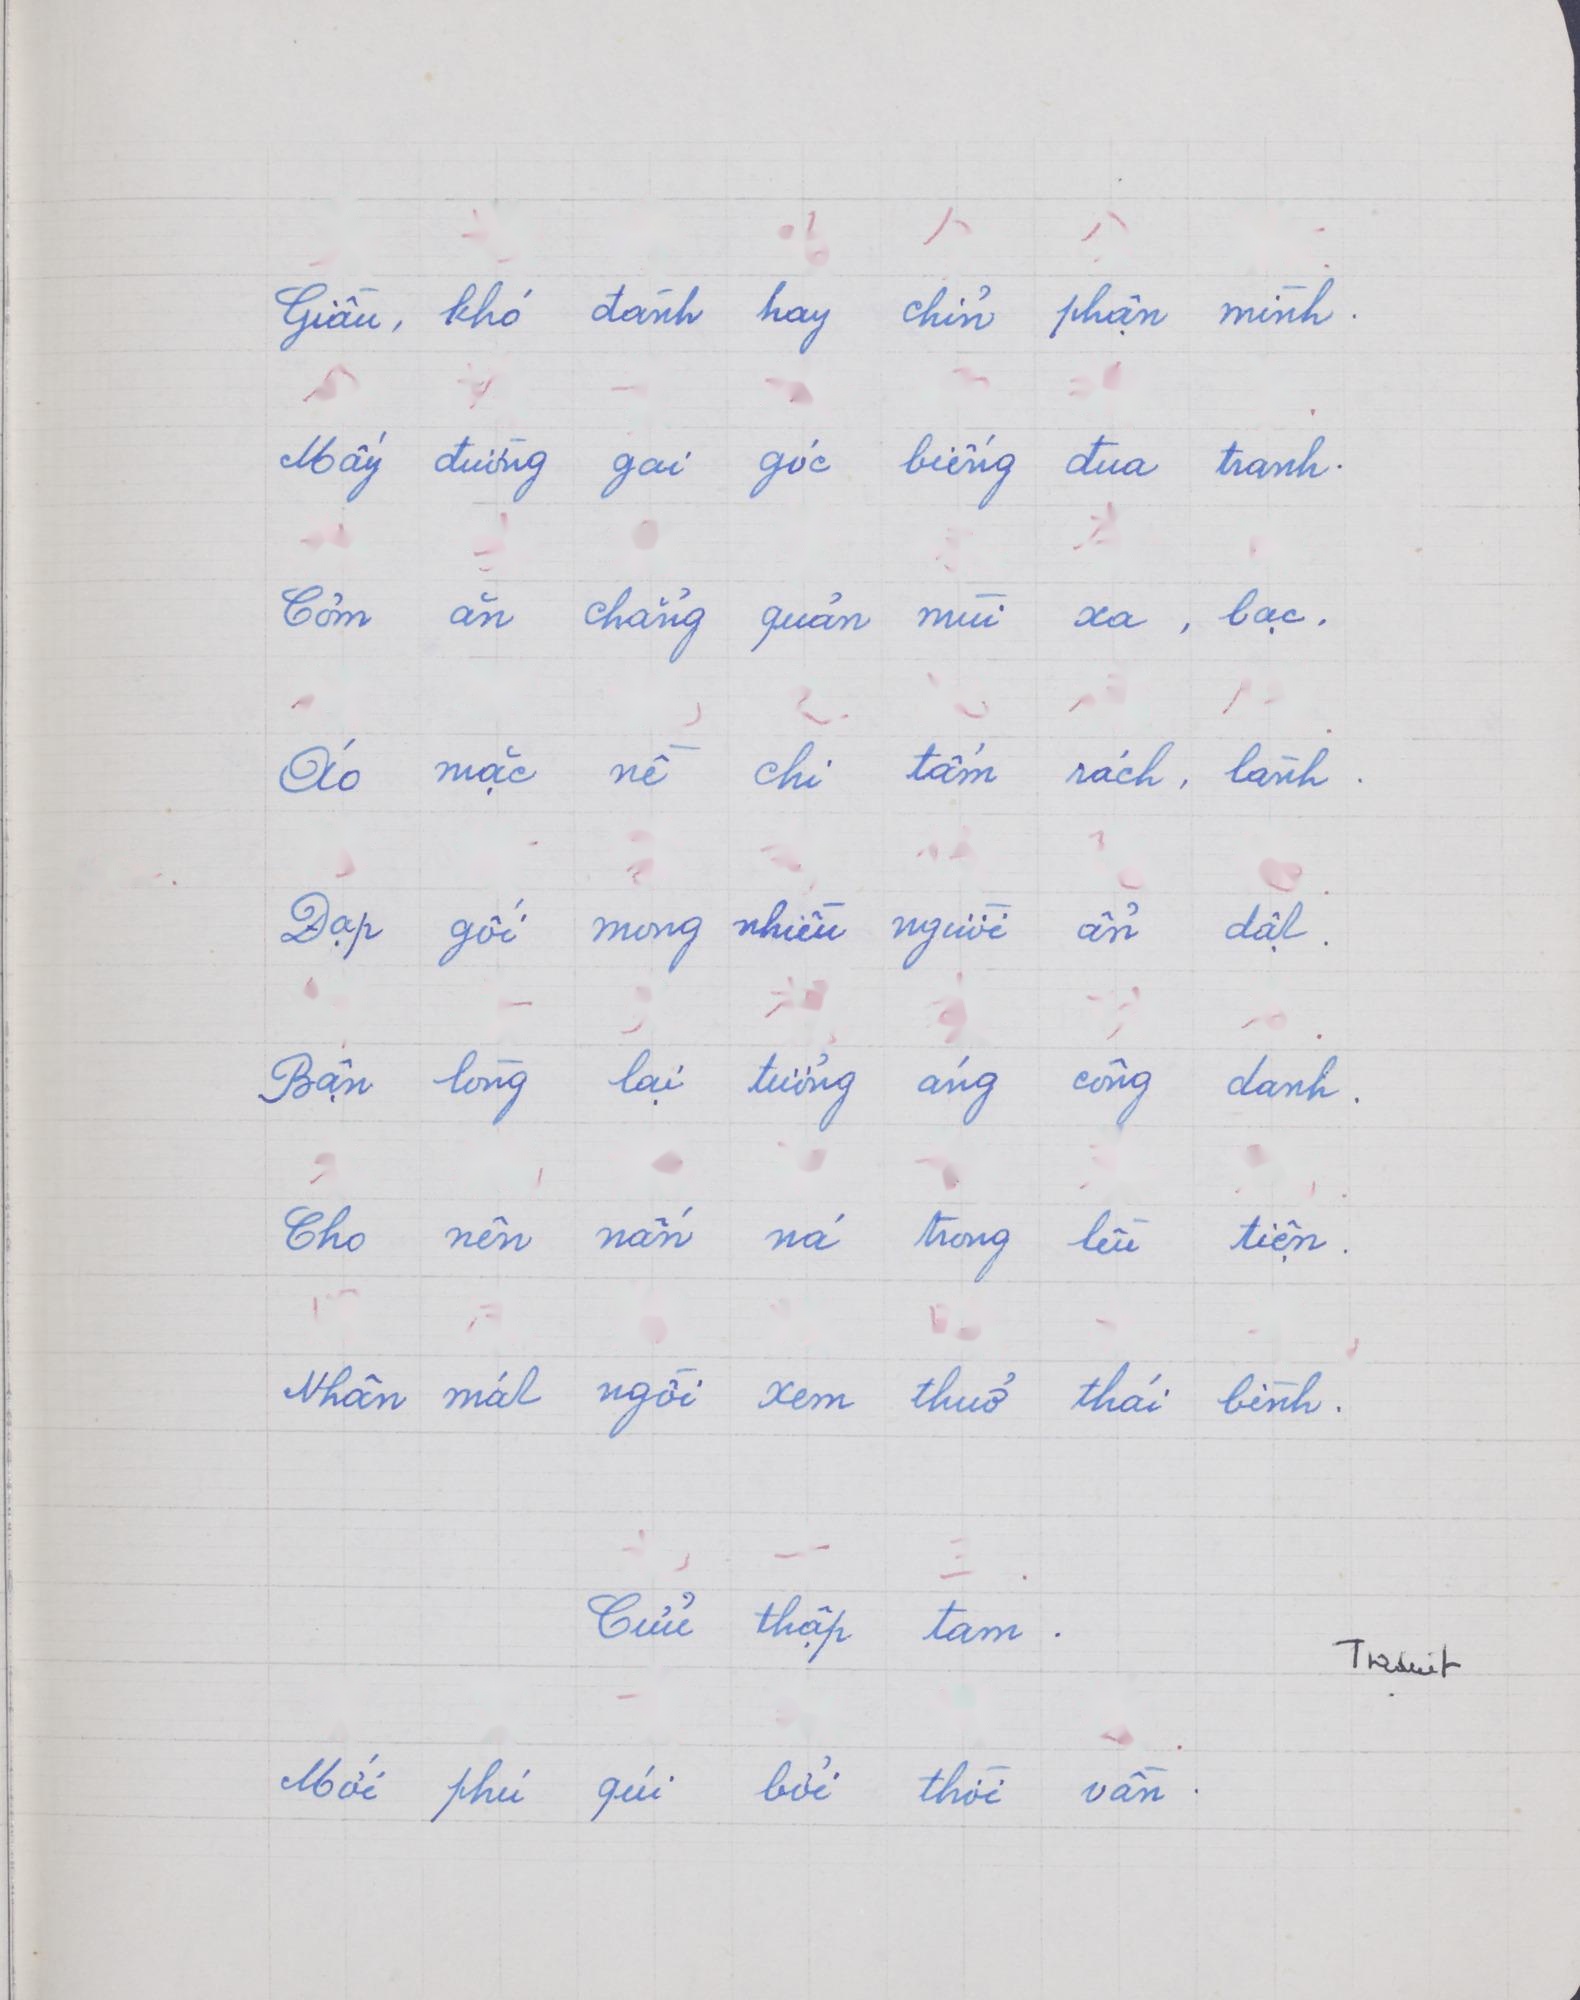 Giầu, khó đành hay chỉn phận mình.
Mấy đường gai góc biếng đua tranh.
Cơm ăn chẳng quản mùi xa, bạc.
Áo mặc nề chi tấm rách, lành.
Đạp gối mong nhiều người ẩn dật.
Bận lòng lại tưởng áng công danh.
Cho nên nấn ná trong lều tiện.
Nhân mát ngồi xem thuở thái bình.
Cửu thập tam.
Mới phú qúi bởi thời vần.